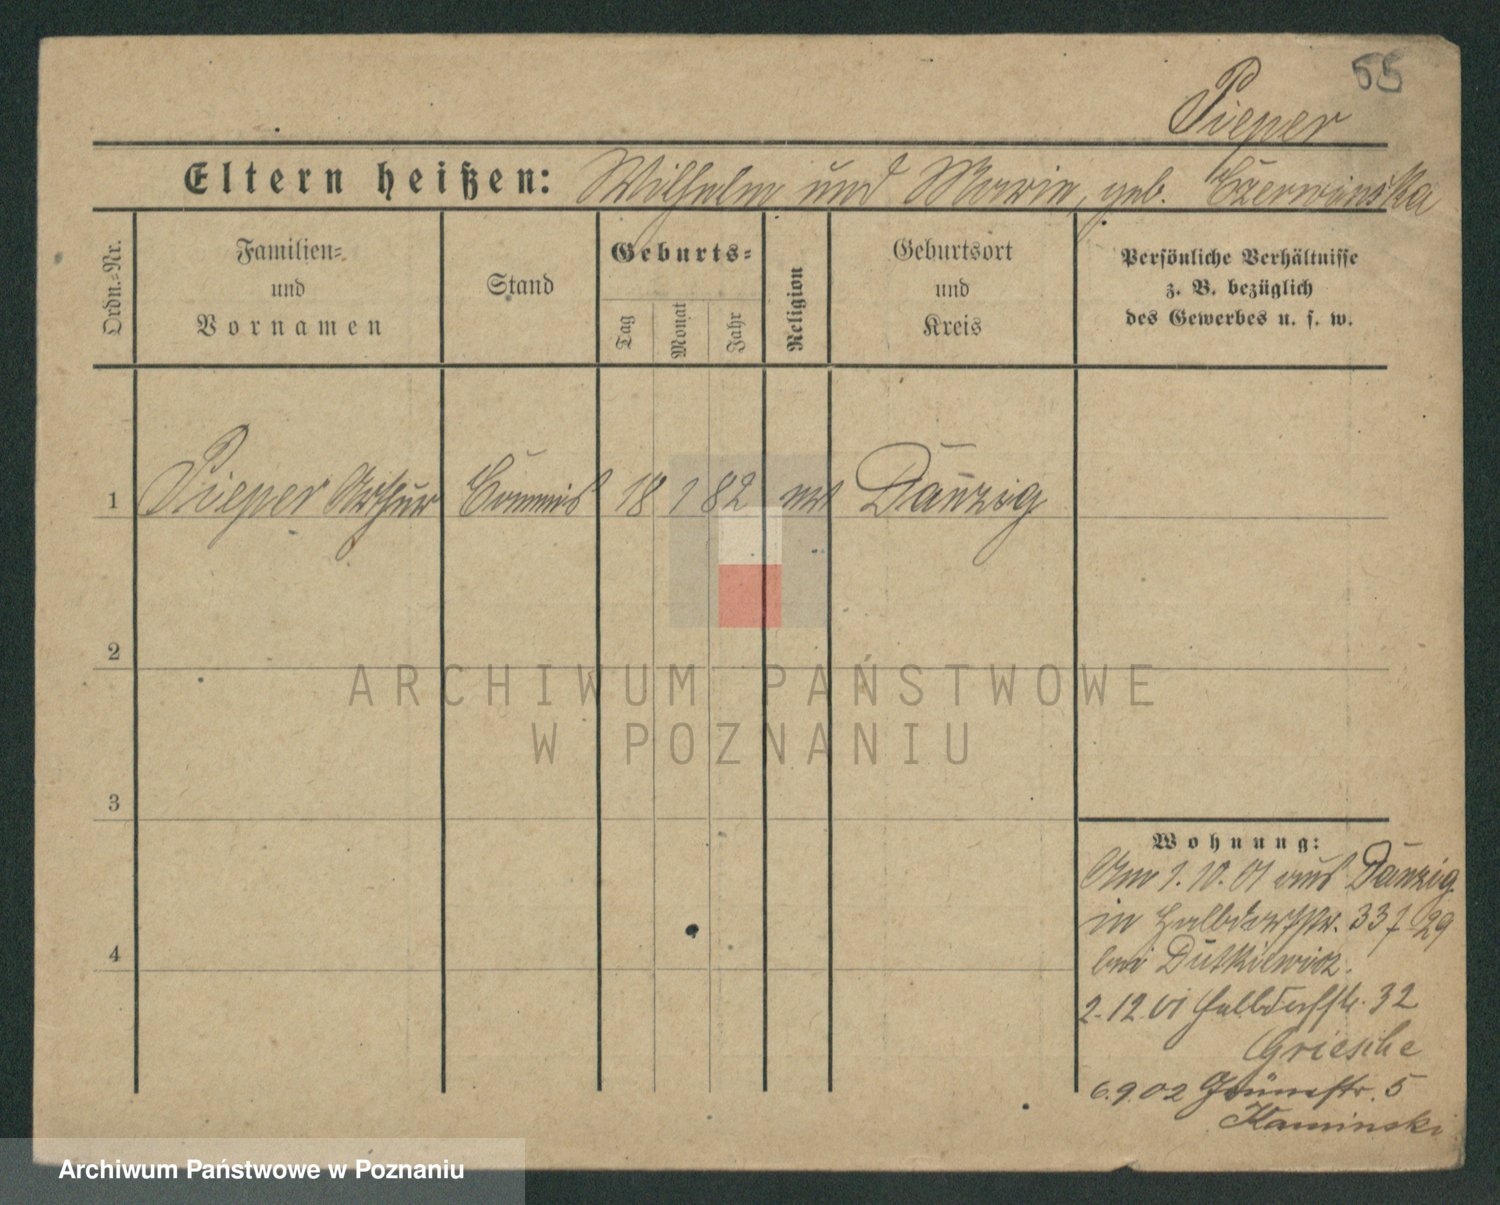 55
Pieper
Eltern heißen: Wilhelm und Marie, geb. Czerwinska
Ordn.-Nr.
Familien-
und
Vornamen
Stand
Geburts-
Tag
Monat
Jahr
Religion
Geburtsort
und
Kreis
Persönliche Verhältnisse
z. B. bezüglich
des Gewerbes u. s. w.
1 Pieper Arthur Commis 18 1 82 Danzig
2
3
4
Wohnung:
Am 1.10.01 aus Danzig
in Halbdorfstr. 29
bei Dutkiewicz.
2.12.01 Halbdorfstr. 32
Griesche
6.9.02 Grünestr. 5
Kaminski
ARCHIWUM PAŃSTWOWE
W POZNANIU
Archiwum Państwowe w Poznaniu